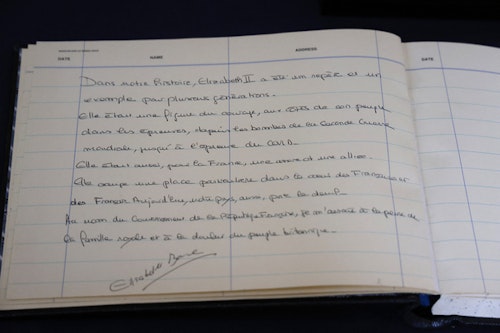 DATE NAME ADDRESS DATE
Dans notre histoire, Elizabeth II a été un repère et un
exemple par plusieurs générations.
Elle était une figure du courage, aux côtés de son peuple
dans les épreuves, depuis les bombes de la Seconde Guerre
mondiale, jusqu'à l'épreuve du COVID.
Elle était aussi, pour la France, une amie et une alliée.
Elle occupe une place particulière dans le cœur des Françaises et
des Français. Aujourd'hui, notre pays, aussi, porte le deuil.
Au nom du Gouvernement de la République Française, je m'associe à la peine de
la famille royale et à la douleur du peuple britannique.
Elisabeth Borne